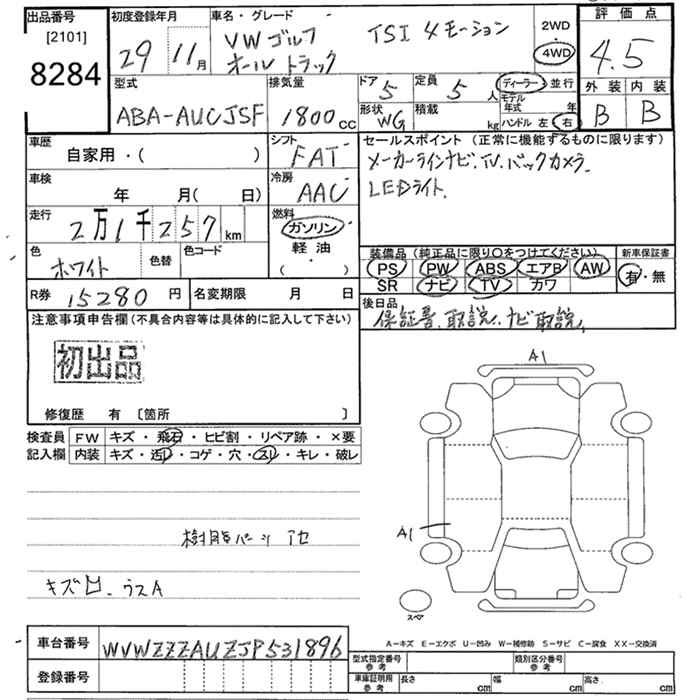 出品番号 [2101] 8284
初度登録年月 29年11月
車名・グレード VWゴルフ オールトラック TSI 4モーション
2WD 4WD
評価点 4.5
外装 B 内装 B
型式 ABA-AUCJSF
排気量 1800cc
ドア 5 定員 5人
形状 WG 積載 kg
ディーラー・並行
モデル年式 年
ハンドル 左 右
車歴 自家用・( )
シフト FAT
車検 年 月( 日)
冷房 AAC
走行 2万1千257km
燃料 ガソリン 軽油 ( ・ )
色 ホワイト 色替 色コード
セールスポイント (正常に機能するものに限ります)
メーカーラインナビ.TV.バックカメラ.
LEDライト.
装備品 (純正品に限り○をつけてください) 新車保証書
PS PW ABS エアB AW 有・無
SR ナビ TV カワ
R券 15280円 名変期限 月 日
後日品 保証書.取説.ナビ取説.
注意事項申告欄 (不具合内容等は具体的に記入して下さい)
初出品
修復歴 有 [箇所 ]
検査員 FW キズ・飛石・ヒビ割・リペア跡・×要
記入欄 内装 キズ・汚レ・コゲ・穴・スレ・キレ・破レ
樹脂パーツ
キズ凹.ウスA
A1
A1
スペア
車台番号 WVWZZZAUZJP531896
登録番号
A-キズ E-エクボ U-凹み W-補修跡 S-サビ C-腐食 XX-交換済
型式指定番号 参考 類別区分番号 参考
車庫証明用 参考 長さ cm 幅 cm 高さ cm